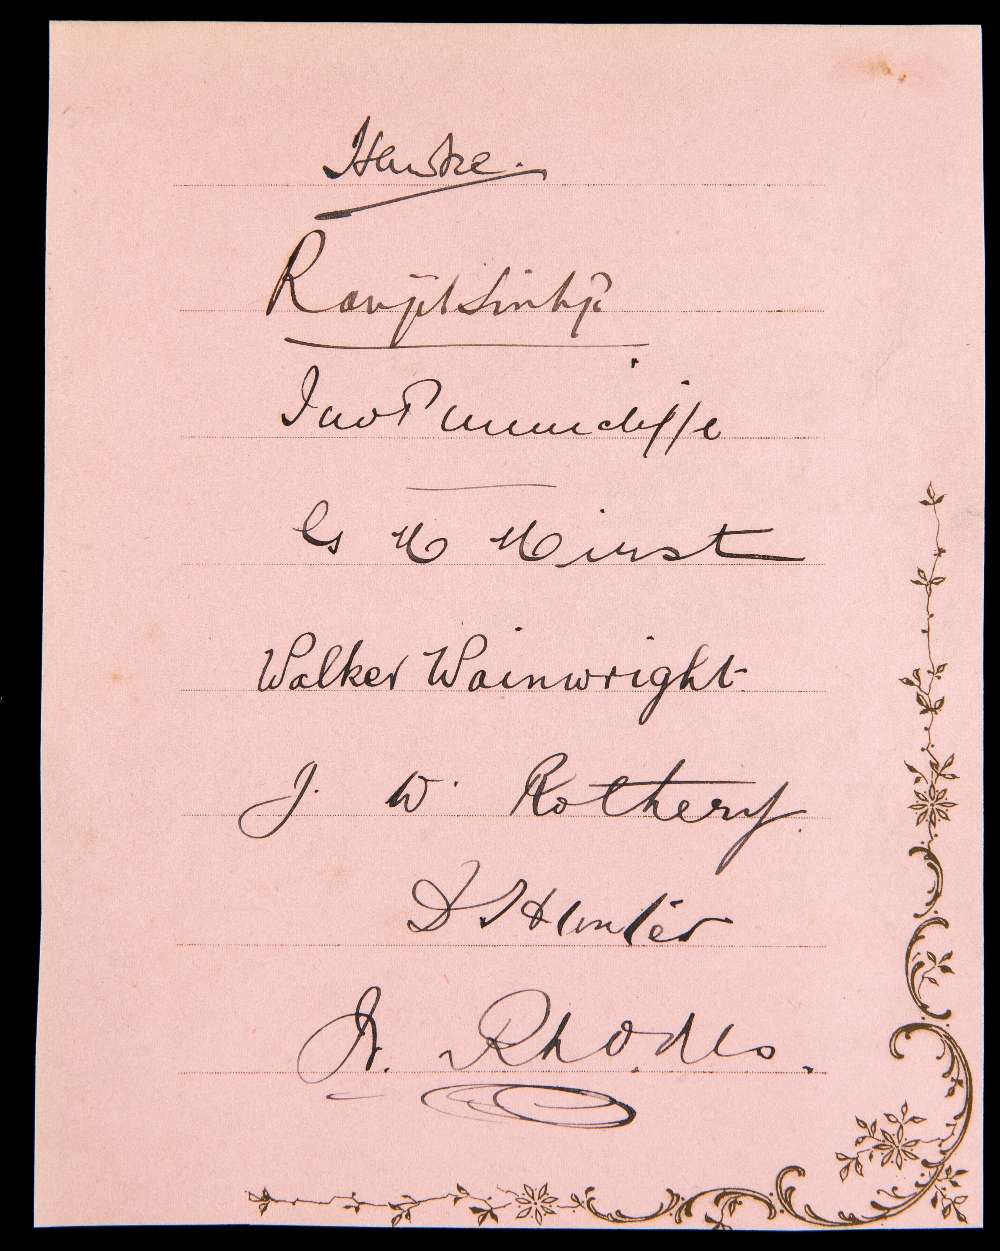 Hawke.
Ranjitsinhji
Jno T Tunnicliffe
G H Hirst
Walker Wainwright
J. W. Rothery.
D Hunter
W. Rhodes.